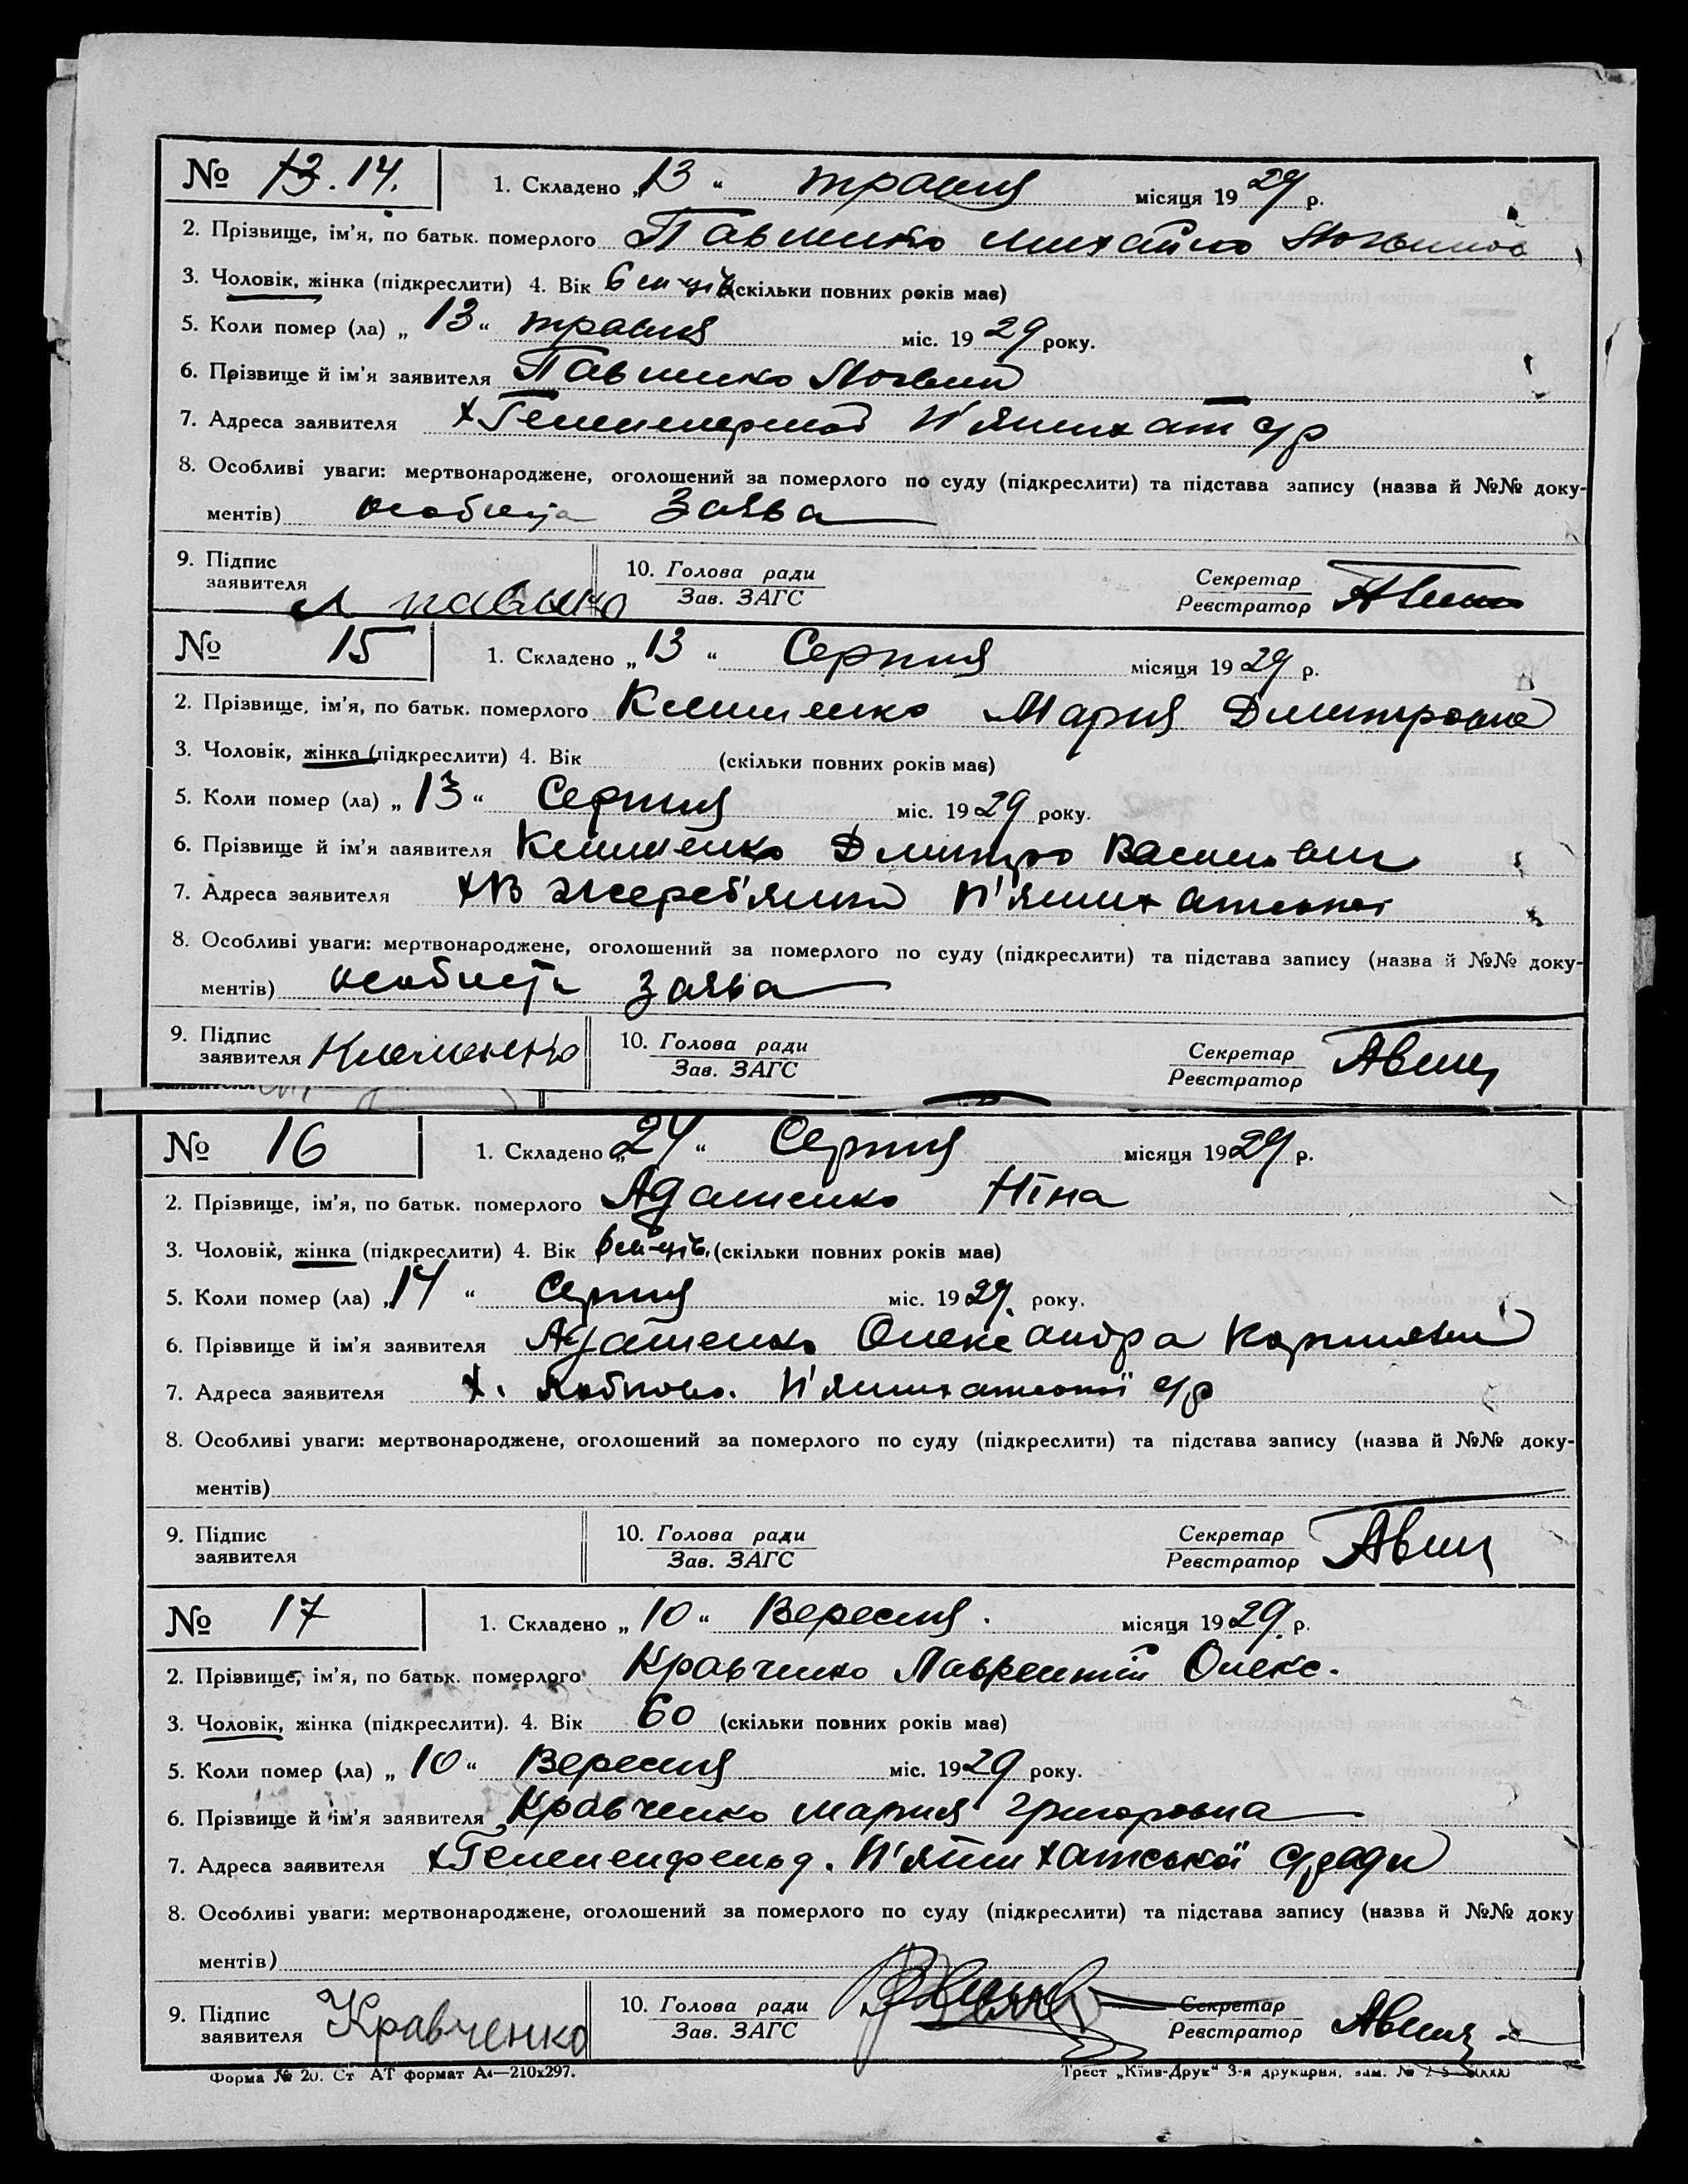 № 13. 14. 1. Складено „13“ травня місяця 1929 р.
2. Прізвище, ім’я, по батьк. померлого Павленко Михайло
3. Чоловік, жінка (підкреслити) 4. Вік 6 м-ців (скільки повних років має)
5. Коли помер (ла) „13“ травня міс. 1929 року.
6. Прізвище й ім’я заявителя Павленко
7. Адреса заявителя х П'ятихат с/р
8. Особливі уваги: мертвонароджене, оголошений за померлого по суду (підкреслити) та підстава запису (назва й №№ доку-
ментів) особиста заява
9. Підпис 10. Голова ради Секретар
заявителя Зав. ЗАГС Реєстратор
№ 15 1. Складено „13“ Серпня місяця 1929 р.
2. Прізвище, ім’я, по батьк. померлого Клименко Мария Дмитровна
3. Чоловік, жінка (підкреслити) 4. Вік (скільки повних років має)
5. Коли помер (ла) „13“ Серпня міс. 1929 року.
6. Прізвище й ім’я заявителя Клименко Дмитро Василович
7. Адреса заявителя х П'ятихатської
8. Особливі уваги: мертвонароджене, оголошений за померлого по суду (підкреслити) та підстава запису (назва й №№ доку-
ментів) особиста заява
9. Підпис 10. Голова ради Секретар
заявителя Клеменко Зав. ЗАГС Реєстратор
№ 16 1. Складено „24“ Серпня місяця 1929 р.
2. Прізвище, ім’я, по батьк. померлого Адаменко Ніна
3. Чоловік, жінка (підкреслити) 4. Вік 6 м-ців. (скільки повних років має)
5. Коли помер (ла) „14“ Серпня міс. 1929. року.
6. Прізвище й ім’я заявителя Адаменко Олександра
7. Адреса заявителя х. П'ятихатської с/р
8. Особливі уваги: мертвонароджене, оголошений за померлого по суду (підкреслити) та підстава запису (назва й №№ доку-
ментів)
9. Підпис 10. Голова ради Секретар
заявителя Зав. ЗАГС Реєстратор
№ 17 1. Складено „10“ Вересня. місяця 1929. р.
2. Прізвище, ім’я, по батьк. померлого Кравченко Лаврентій Олекс.
3. Чоловік, жінка (підкреслити). 4. Вік 60 (скільки повних років має)
5. Коли помер (ла) „10“ Вересня міс. 1929 року.
6. Прізвище й ім’я заявителя Кравченко Мария Григоровна
7. Адреса заявителя х П'ятихатської с/ради
8. Особливі уваги: мертвонароджене, оголошений за померлого по суду (підкреслити) та підстава запису (назва й №№ доку
ментів)
9. Підпис 10. Голова ради Секретар
заявителя Кравченко Зав. ЗАГС Реєстратор
Форма № 20. Ст АТ формат А4—210х297. Трест „Київ-Друк“ 3-я друкарня, зам. №